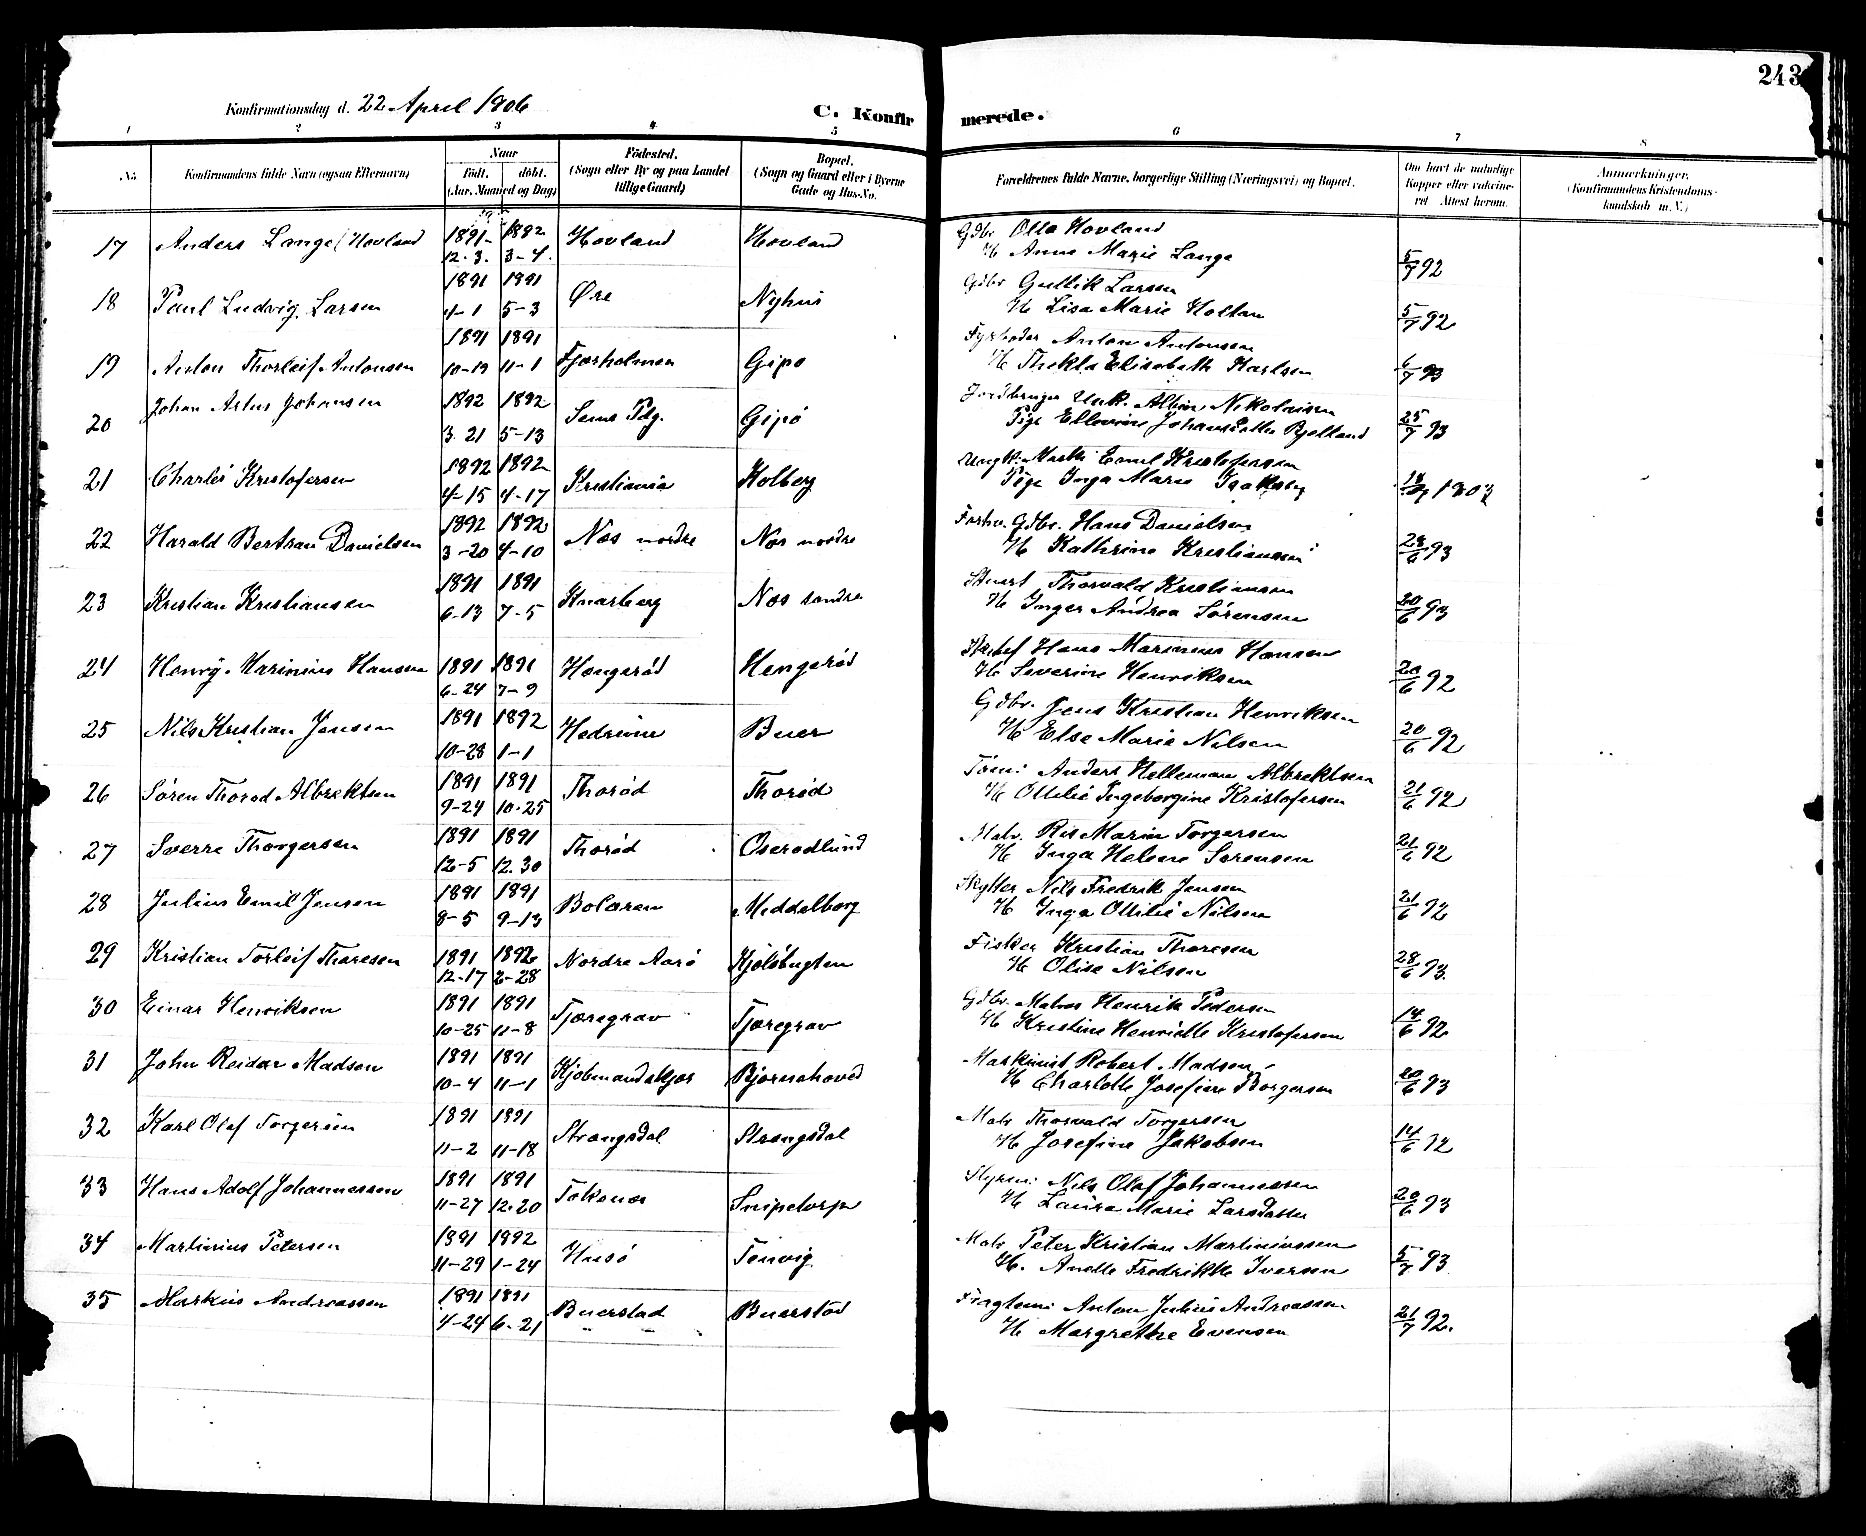 243
Konfirmationsdag d. 22 April 1906
C. Konfirmerede.
1 2 3 4 5 6 7 8
No. Konfirmandens fulde Navn (ogsaa Efternavn) Naar født. døbt. (Aar, Maaned og Dag) Fødested. (Sogn eller By og paa Landet tillige Gaard) Bopæl. (Sogn og Gaard eller i Byerne Gade og Hus-No. Forældrenes fulde Navne, borgerlige Stilling (Næringsvei) og Bopæl. Om havt de naturlige Kopper eller vakcineret Attest herom. Anmærkninger. (Konfirmandens Kristendomskundskab m. V.)
17 Anders Lange (Hovland 1891- 12.3. 1892 3-4. Hovland Hovland Gdbr Olla Hovland
H Anne Marie Lange 5/7 92
18 Paul Ludvig Larsen 1891 4-1 1891 5-3 Øre Nyhus Gdbr Gullik Larsen
H Lisa Marie Holtan 5/7 92
19 Anton Thorleif Antonsen 1891 10-19 1891 11-1 Fjærholmen Gipø Fyrbøder Anton Antonsen
H Thekla Elisabeth Karlsen 6/7 93
20 Johan Artur Johansen 1892 3.21 1892 5-13 Sems Pdg. Gipø Jordbruger Unk. Albin Nikolaisen
Pige Ellevine Johansdatter Bjelland 25/7 93
21 Charles Kristofersen 1892 4-15 1892 4-17 Kristiania Holberg Ungk. Marth Emil Kristofersen
Pige Inga Marie Isaksby
22 Harald Bertran Danielsen 1892 3-20 1892 4-10 Næs nordre Næs nordre Forhv. Gdbr. Hans Danielsen
H Kathrine Kristiansen 28/6 93
23 Kristian Kristiansen 1891 6-13 1891 7-5 Knarberg Næs søndre Stuert Thorvald Kristiansen
H Inger Andrea Sørensen 20/6 93
24 Henry Marinius Hansen 1891 6-24 1891 7-9 Hængsrød Hengsrød Hans Marinius Hansen
H Severine Henriksen 20/6 92
25 Nils Kristian Jensen 1891 10-28 1892 1-1 Hedrivin Buer Gdbr. Jens Kristian Henriksen
H Else Marie Nilsen 20/6 92
26 Søren Thorød Albrektsen 1891 9-24 1891 10.25 Thorød Thorød Tøm: Anders Helleman Albrektsen
H Ottilie Ingeborgine Kristofersen 21/6 92
27 Sverre Thorgersen 1891 12-5 1891 12.30 Thorød Oserødlund Matr. Ris Marin Torgersen
H Inga Helene Sørensen 21/6 92
28 Julius Emil Jensen 1891 8-5 1891 9-13 Bolæren Meddelborg Skytter Nils Fredrik Jensen
H Inga Ottilie Nilsen 21/6 92
29 Kristian Torleif Thoresen 1891 12-17 1892 2-28 Nordre Aarø Kjøløbugten Fisker Kristian Thoresen
H Olise Nilsen 28/6 93.
30 Einar Henriksen 1891 10-25 1891 11-8 Tjæregrav Tjæregrav Gdbr. Matros Henrik Pedersen
H Kristine Henriette Kristofersen 14/6 92
31 John Reidar Madsen 1891 10-4 1891 11-1 Kjøbmandskjær Bjørnehoved Maskinist Robert Madsen
H Charlotte Josefine Borgersen 20/6 93
32 Karl Olaf Torgersen 1891 11-2 1891 11-18 Strængsdal Strengsdal Matr Thorvald Torgersen
H Josefine Jakobsen 14/6 92
33 Hans Adolf Johannessen 1891 11-27 1891 12.20 Tokenes Snipetorp Styrm: Nils Olaf Johannessen
H Laura Marie Larsdatter 20/6 93
34 Martinius Petersen 1891 11-29 1892 1-24 Husø Tenvig Matr Peter Kristian Martiniussen
H. Anette Fredrikke Iversen 5/7 93
35 Markus Andreassen 1891 4-24 1891 6-21 Buerstad Buerstad Fragtem: Anton Julius Andreassen
H Margrethe Evensen 21/7 92.